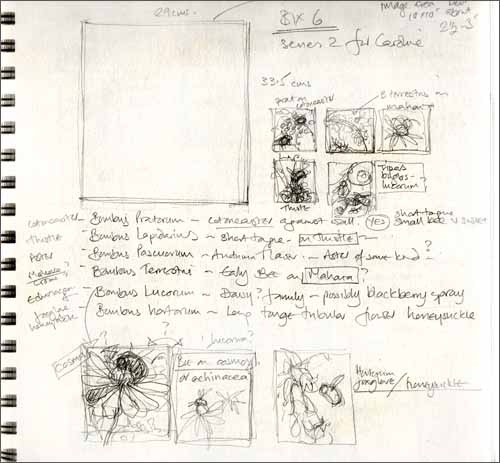 29cms.
8 x 6
series 2 for Caroline
Image Area
10 x 10"
33.5 cms
pratorum
cotoneaster
B terrestris on
mahonia
Thistle
lucorum
cotoneaster - Bombus Pratorum - cotoneaster against wall. YES short tongue
small bee
Thistle - Bombus Lapidarius - short tongue - on Thistle
Aster - Bombus Pascuorum - Autumn flower - Aster of some kind?
Bombus Terrestris - Early Bee on Mahonia?
Echinacea or - Bombus Lucorum - Daisy? family - possibly blackberry spray
foxglove
honeysuckle
Bombus hortorum - Long tongue tubular flower honeysuckle
?
?
lucorum?
Cosmos
Bee on cosmos
or echinacea
Hortorum
foxglove / honeysuckle